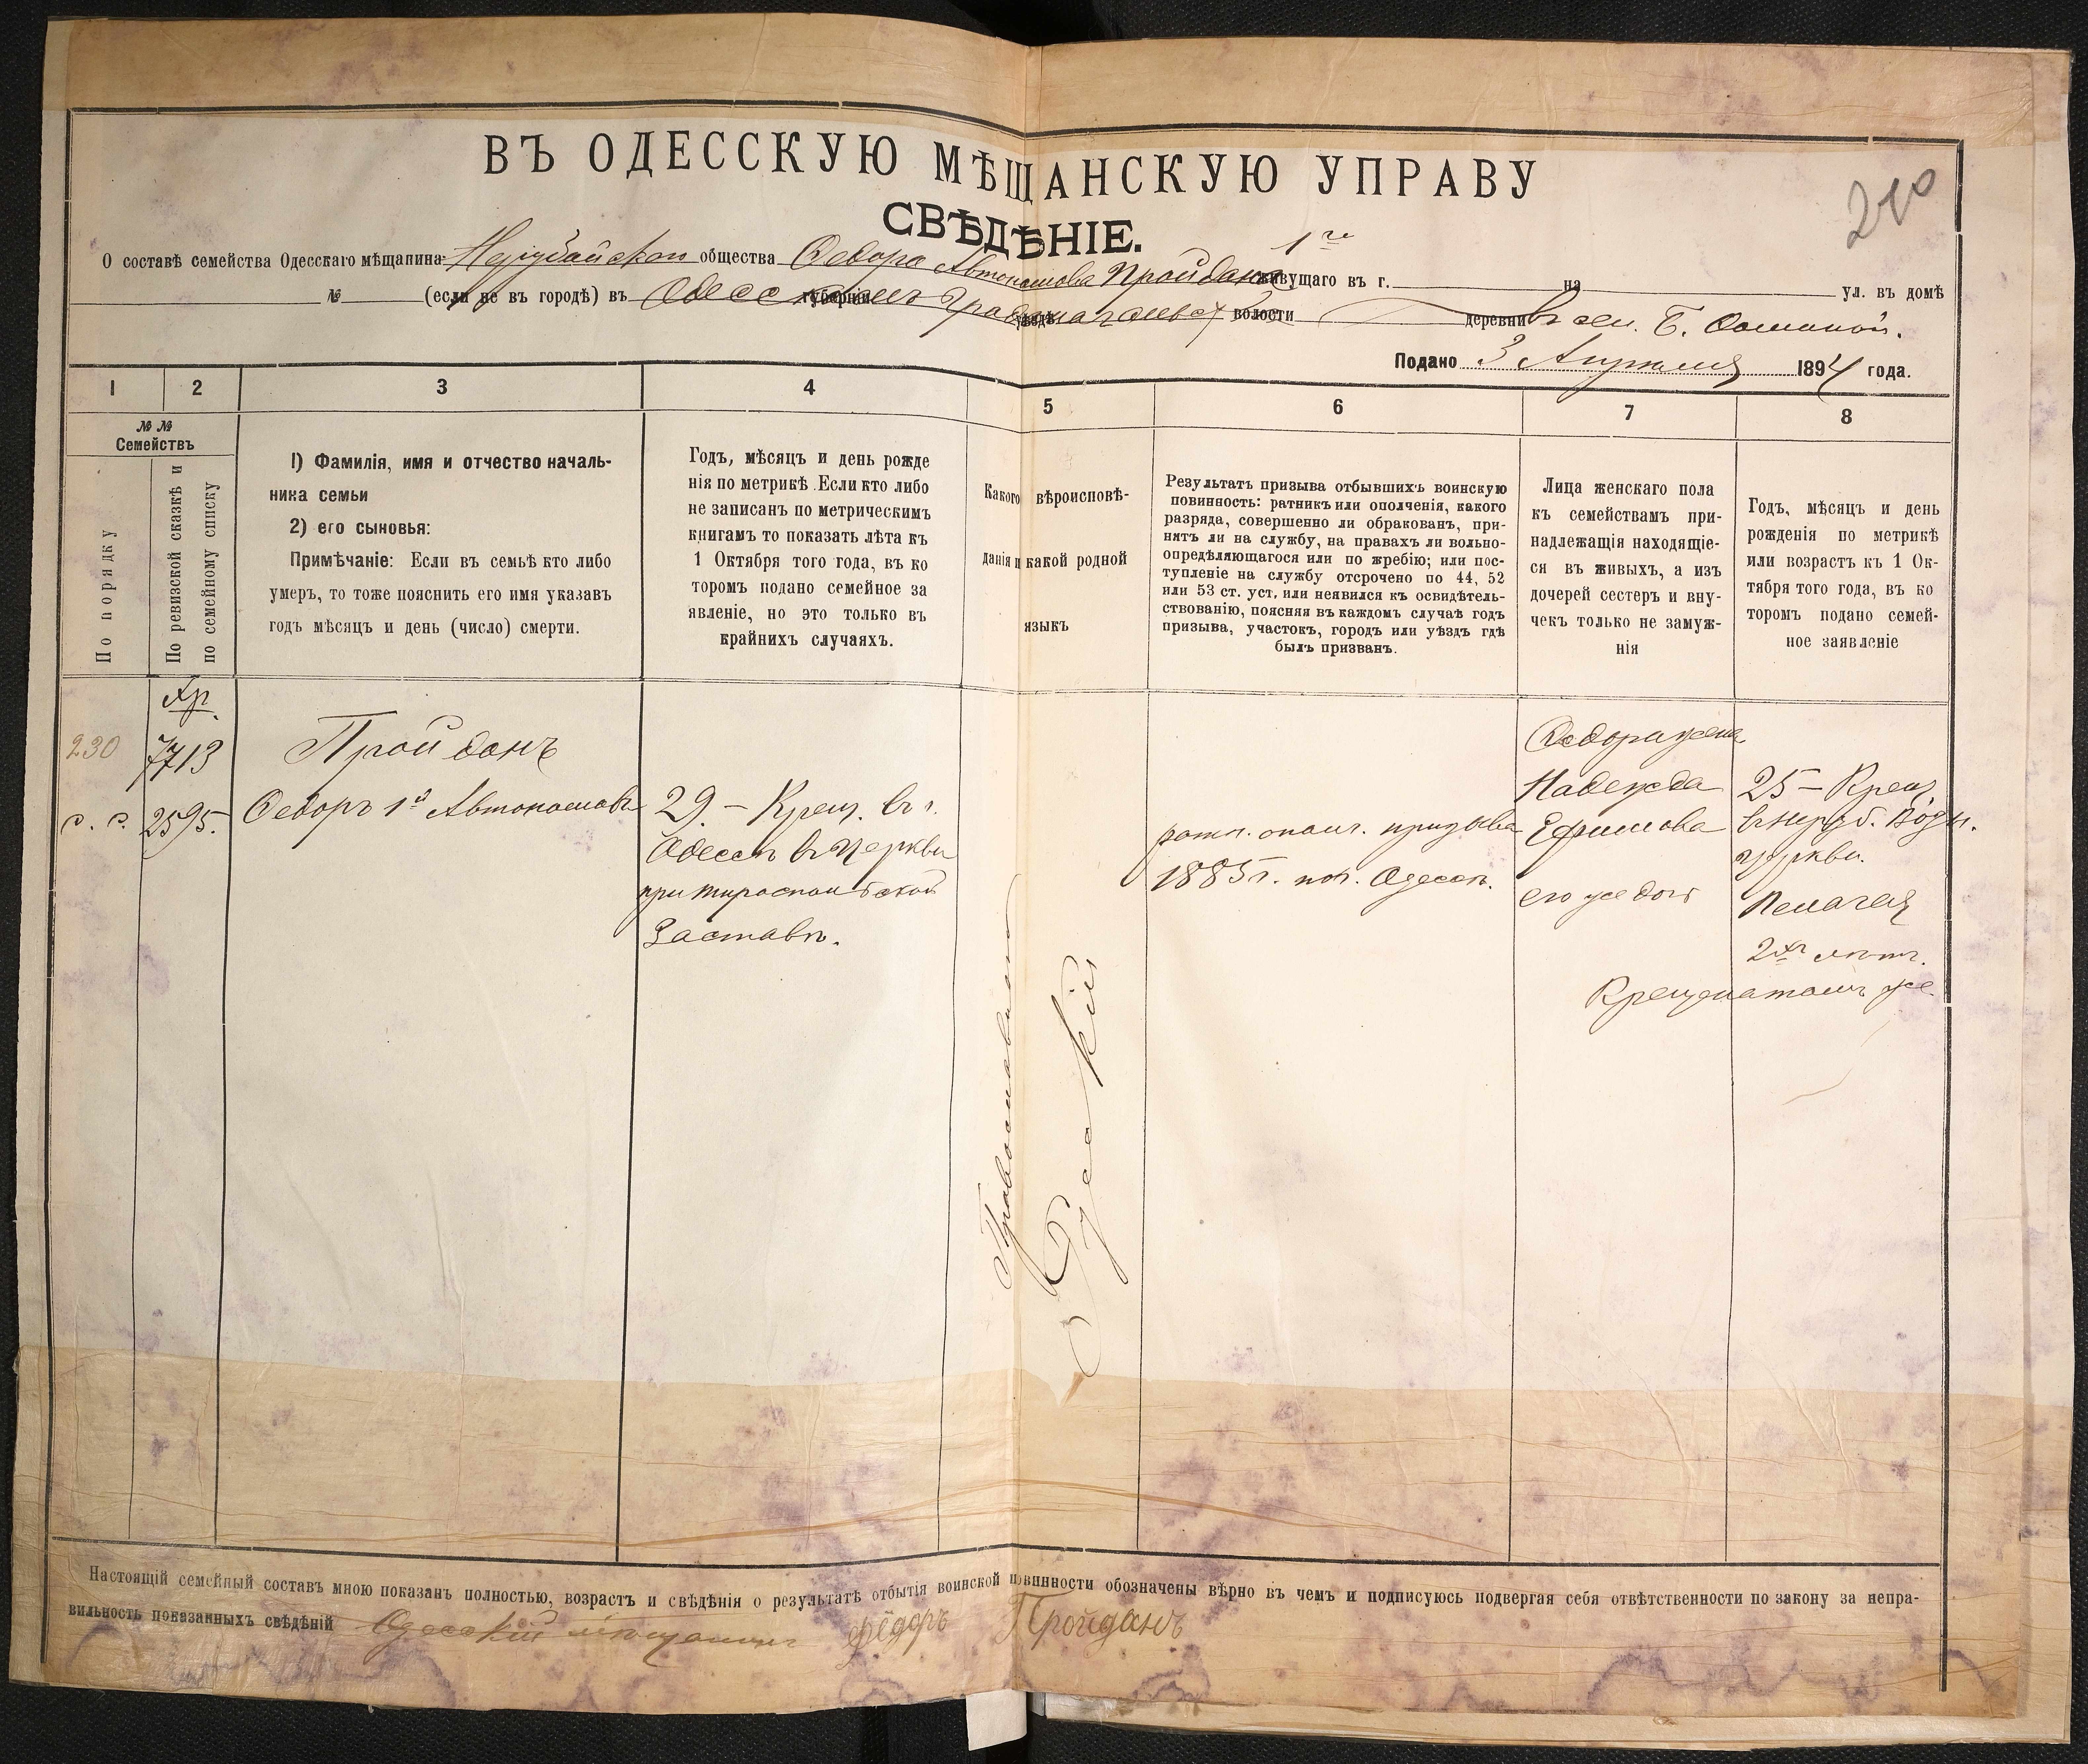 210
ВЪ ОДЕССКУЮ МѢЩАНСКУЮ УПРАВУ
СВѢДѢНІЕ.
О составѣ семейства Одесскаго мѣщанина общества Ѳедора 1го Автономова Пройдана живущаго въ г. на ул. въ домѣ
№ (если не въ городѣ) въ Одесскомъ губерніи уѣздѣ волости деревни
Подано 3 Апрѣля 1894 года.
1 2 3 4 5 6 7 8
№ №
Семействъ
По порядку
По ревизской сказкѣ и
по семейному списку
1) Фамилія, имя и отчество началь-
ника семьи
2) его сыновья:
Примѣчаніе: Если въ семьѣ кто либо
умеръ, то тоже пояснить его имя указавъ
годъ мѣсяцъ и день (число) смерти.
Годъ, мѣсяцъ и день рожде
нія по метрикѣ. Если кто либо
не записанъ по метрическимъ
книгамъ то показать лѣта къ
1 Октября того года, въ ко
торомъ подано семейное за
явленіе, но это только въ
крайнихъ случаяхъ.
Какого вѣроисповѣ-
данія и какой родной
языкъ
Результатъ призыва отбывшихъ воинскую
повинность: ратникъ или ополченія, какого
разряда, совершенно ли обракованъ, при-
нятъ ли на службу, на правахъ ли вольно-
опредѣляющагося или по жребію; или пос-
тупленіе на службу отсрочено по 44, 52
или 53 ст. уст. или неявился къ освидѣтель-
ствованію, поясняя въ каждомъ случаѣ годъ
призыва, участокъ, городъ или уѣздъ гдѣ
былъ призванъ.
Лица женскаго пола
къ семействамъ при-
надлежащія находящіе-
ся въ живыхъ, а изъ
дочерей сестеръ и вну-
чекъ только не замуж-
нія
Годъ, мѣсяцъ и день
рожденія по метрикѣ
или возрастъ къ 1 Ок-
тября того года, въ ко
торомъ подано семей-
ное заявленіе
230
7713
с. с. 2595.
Пройданъ
Ѳедоръ 1й Автономовъ
29. – Крещ. въ г.
Одессѣ въ Церкви
при тираспольской
Заставѣ.
Православнаго
Русскій
ратн. опол. призыва
1885 г. по г. Одессѣ.
Ѳедора жена
Надежда
Ефимова
его же дочь
25 – Крещ.
церкви.
Пелагея
2хъ лѣтъ.
Крещена тамъ же.
Настоящій семейный составъ мною показанъ полностью, возрастъ и свѣдѣнія о результатѣ отбытія воинской повинности обозначены вѣрно въ чемъ и подписуюсь подвергая себя отвѣтственности по закону за непра-
вильность показанныхъ свѣдѣній Одесскій мѣщанинъ Фёдоръ Пройданъ